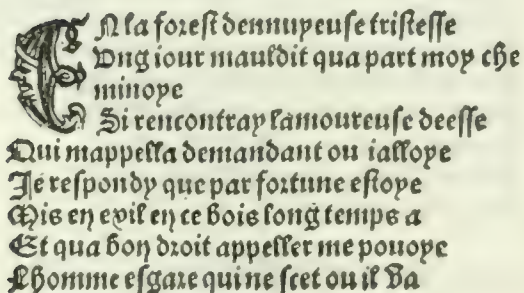 En la forest dennuyeuse tristesse
Ung iour mauldit qua part moy che
minoye
Si rencontray lamoureuse deesse
Qui mappella demandant ou ialloye
Je respondy que par fortune estoye
Mis en exil en ce bois long temps a
Et qua bon droit appeller me pouoye
Lhomme esgare qui ne scet ou il va